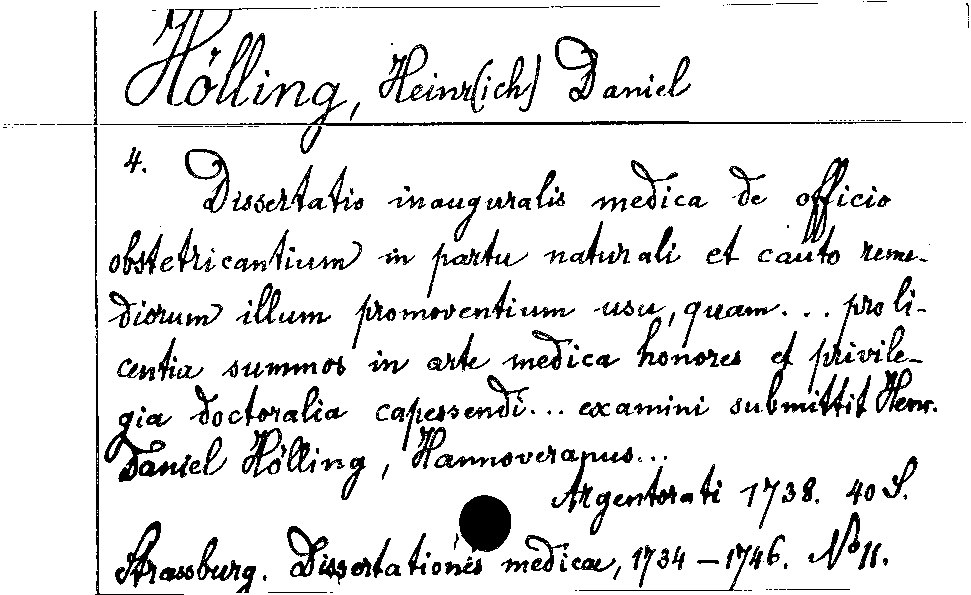 Hölling, Heinr(ich) Daniel
4.
Dissertatio inauguralis medica de officio
obstetricantium in partu naturali et cauto reme-
diorum illum promoventium usu, quam... pro li-
centia summos in arte medica honores et privile-
gia doctoralia capessendi... examini submittit Henr.
Daniel Hölling, Hannoveranus...
Argentorati 1738. 40 S.
Strassburg. Dissertationes medicae, 1734-1746. No 11.